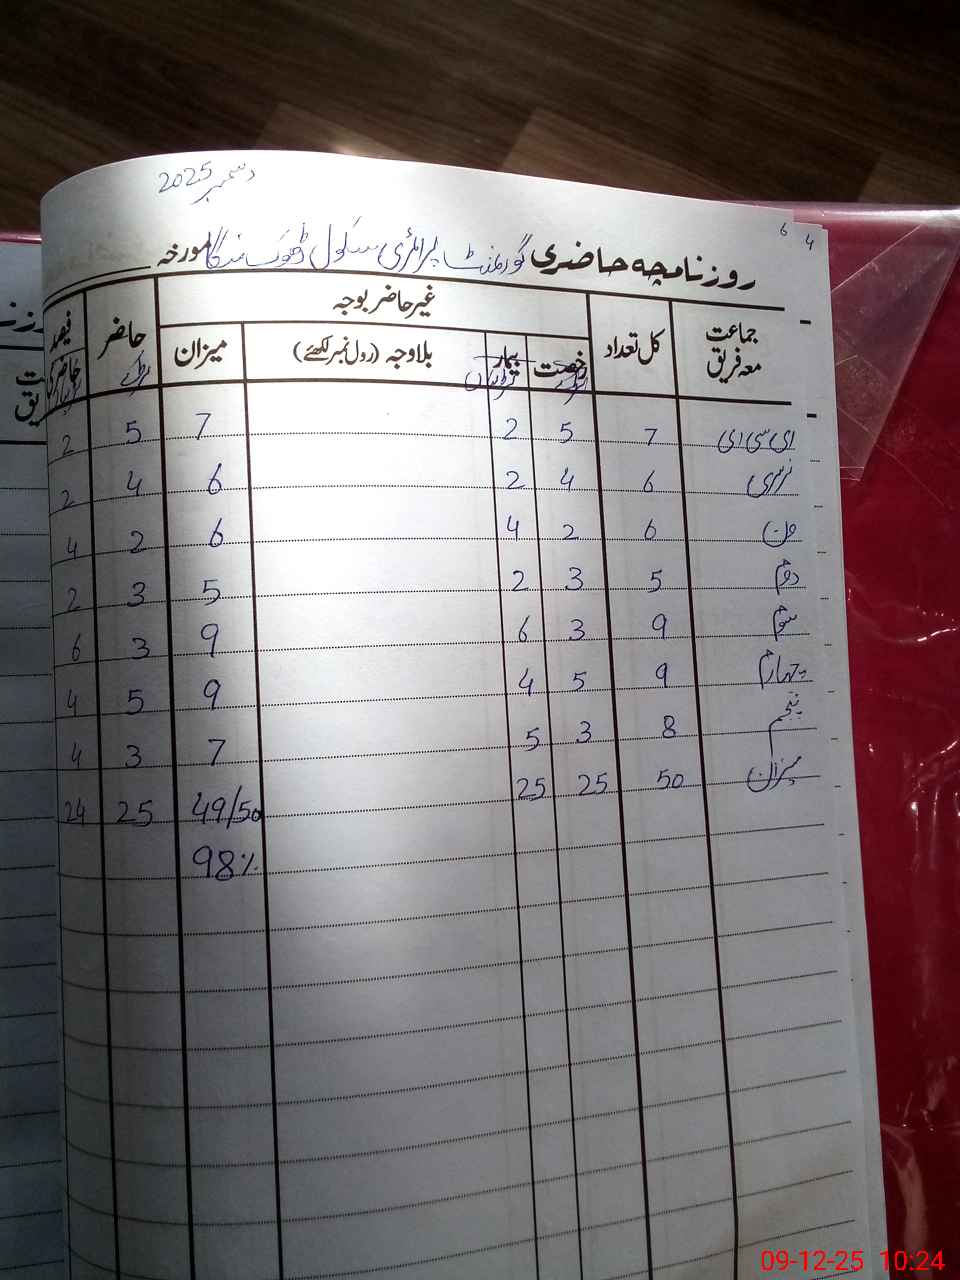 دسمبر 2025
6 4
روزنامچہ حاضری گورنمنٹ پرائمری سکول ڈھوک منگا مورخہ
جماعت معہ فریق کل تعداد غیر حاضر بوجہ حاضر فیصد حاضری
رخصت بیمار بلاوجہ (رول نمبر لکھئے) میزان
ای سی ای 7 5 2 7 5 2
نرسری 6 4 2 6 4 2
ون 6 2 4 6 2 4
دوم 5 3 2 5 3 2
سوم 9 3 6 9 3 6
چہارم 9 5 4 9 5 4
پنجم 8 3 5 7 3 4
میزان 50 25 25 49/50 25 24
98%
09-12-25 10:24